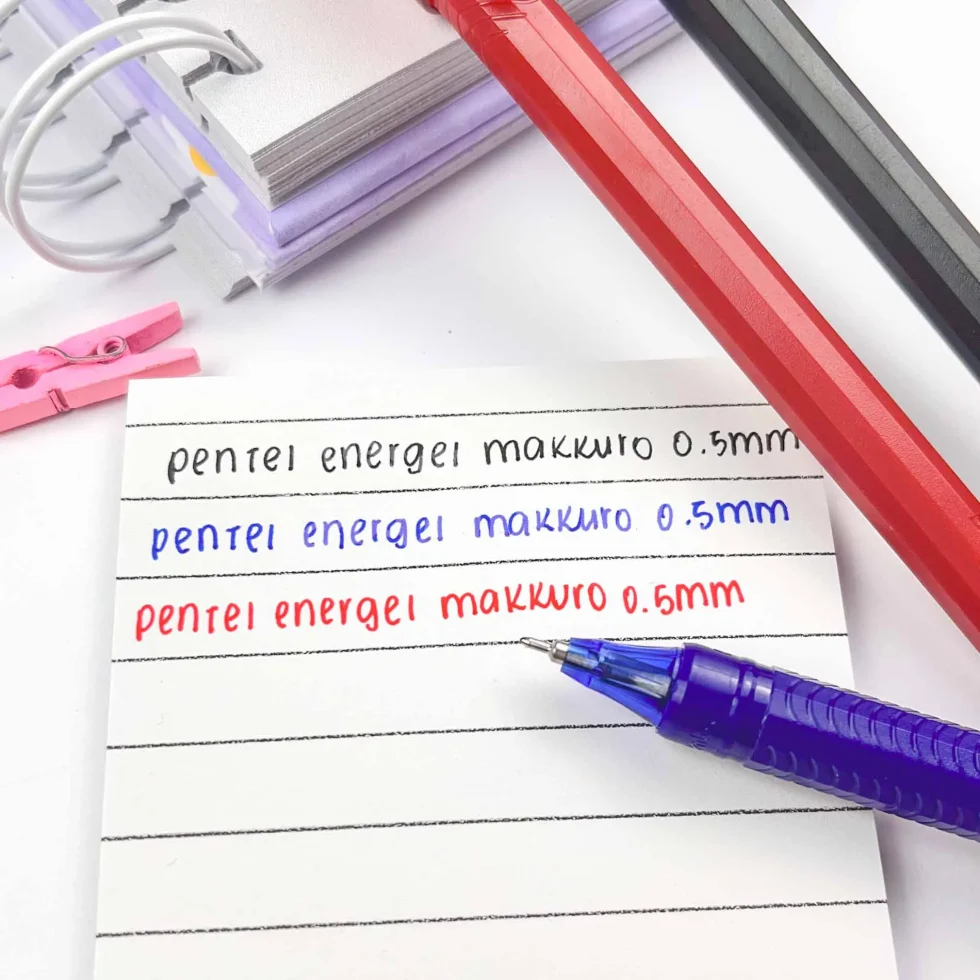 pentel energel makkuro 0.5mm
pentel energel makkuro 0.5mm
pentel energel makkuro 0.5mm